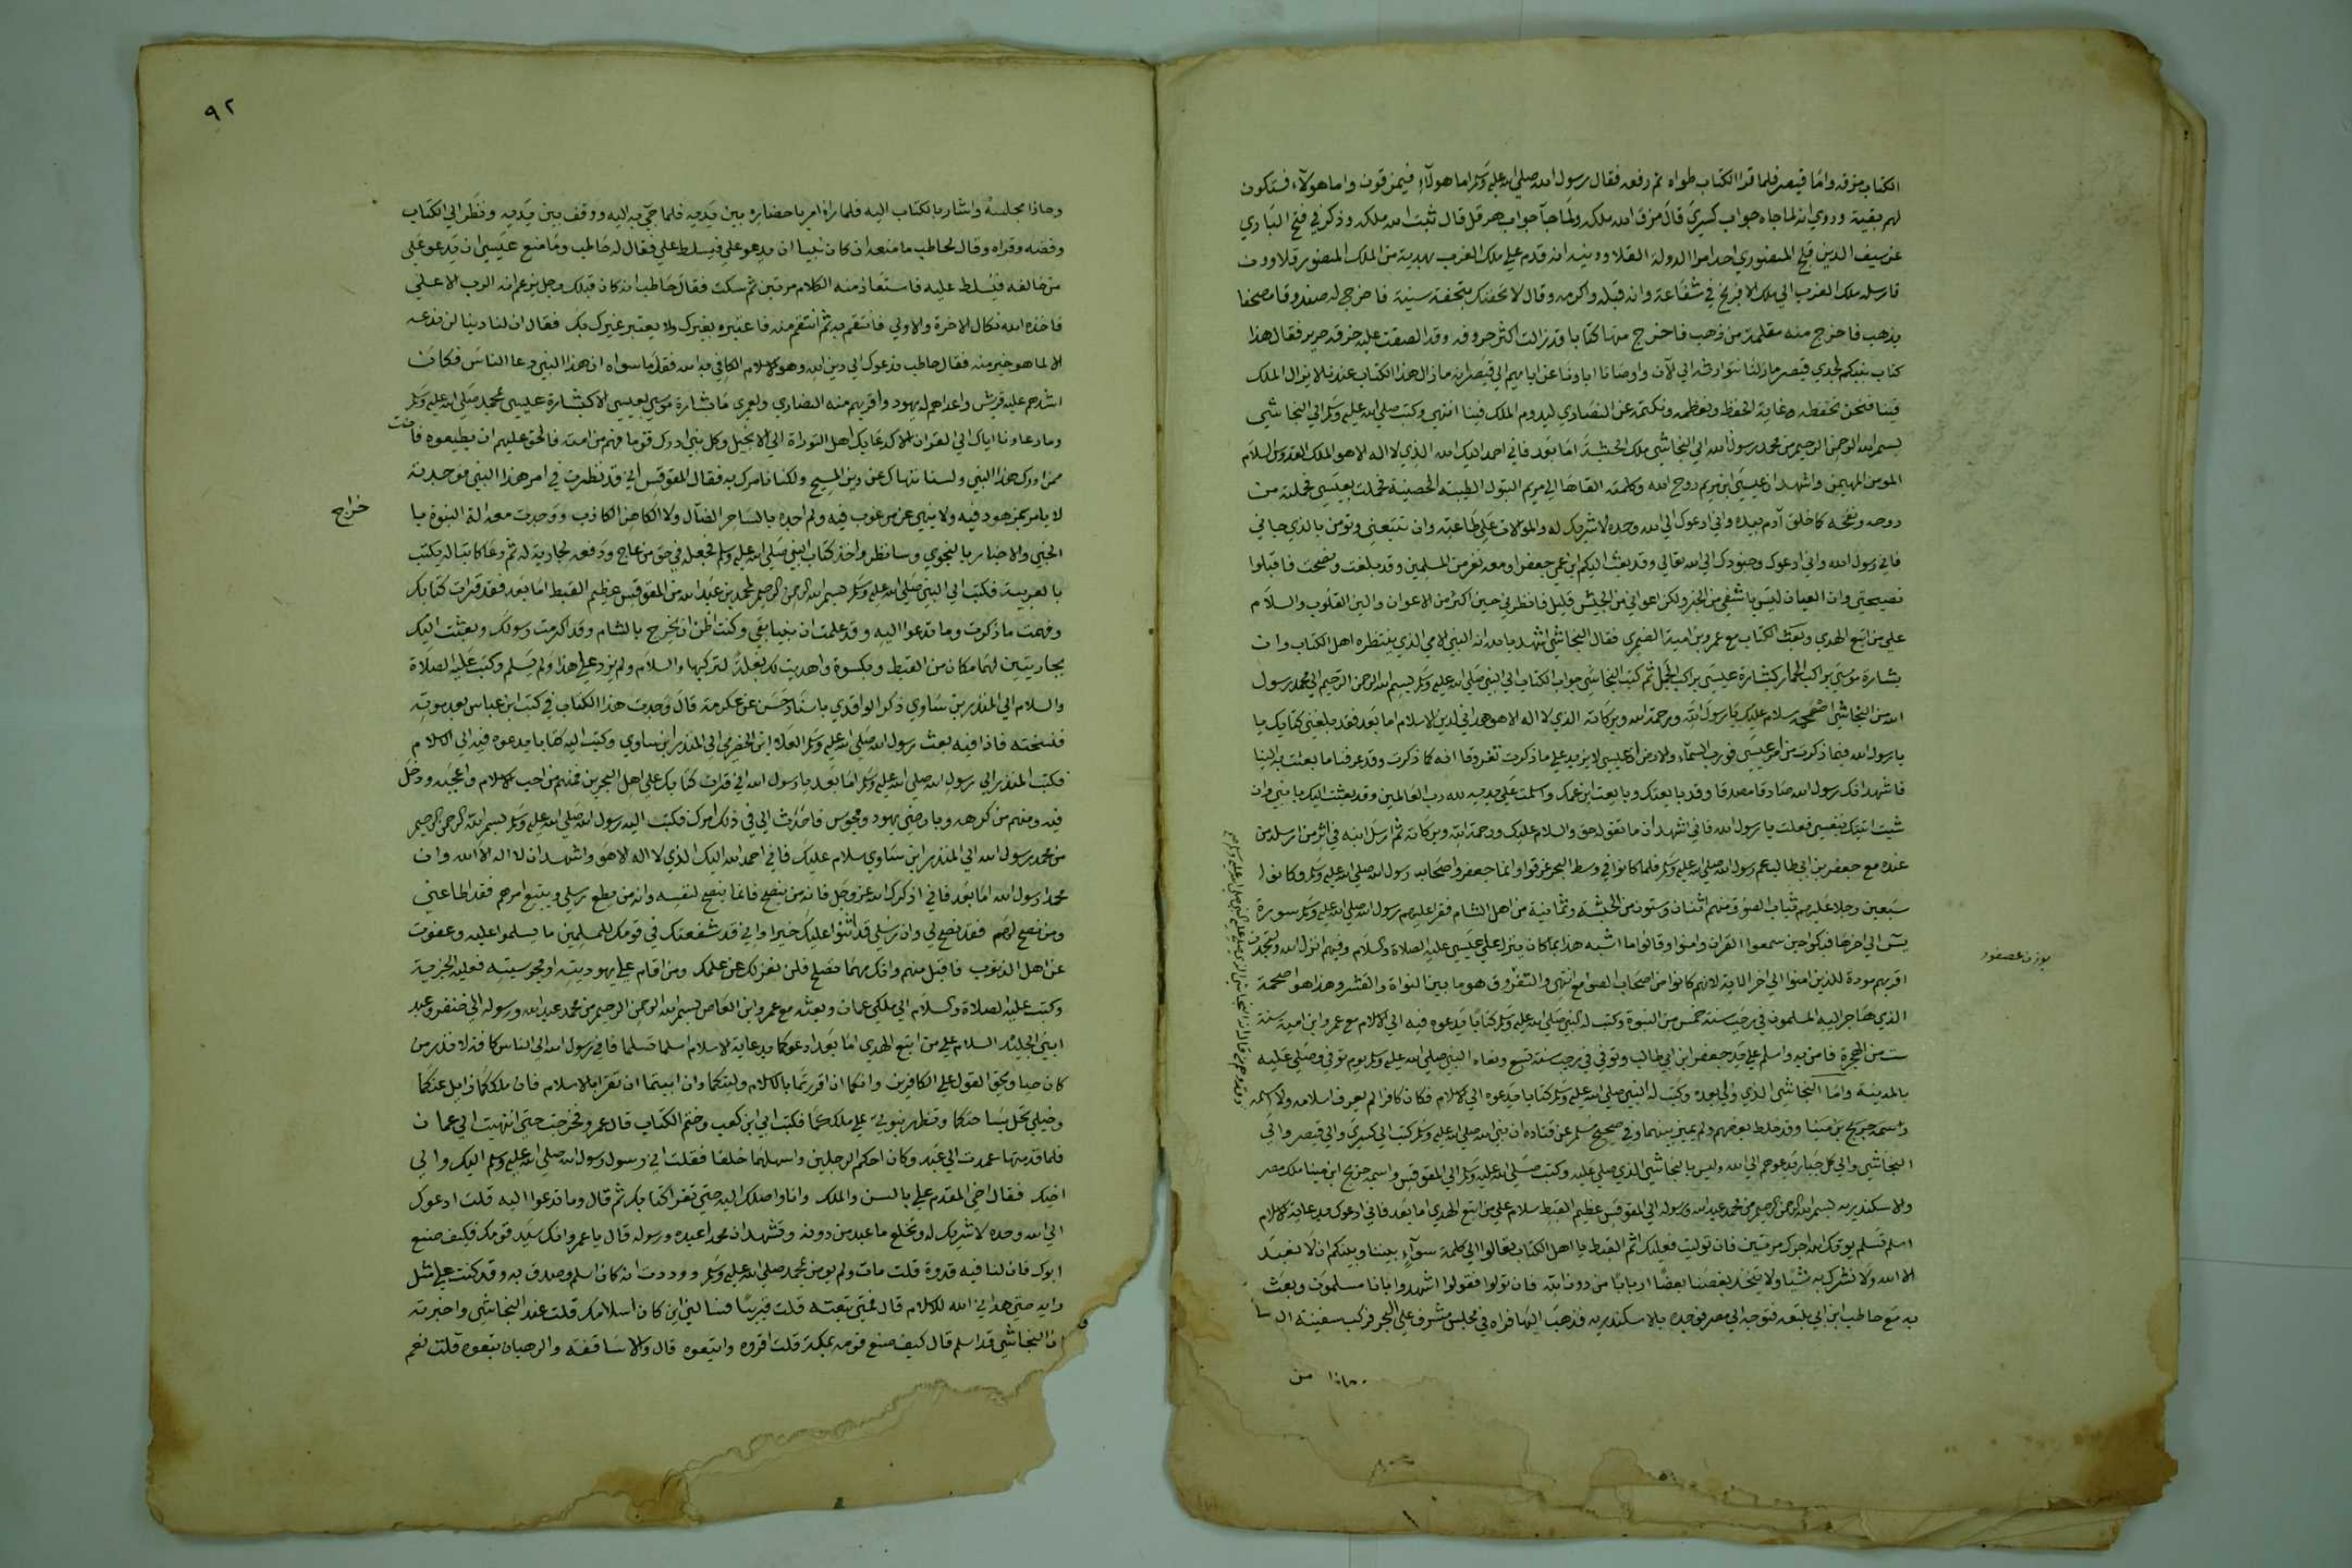 الكتاب مزقه واما قيصر فلما قرا الكتاب طواه ثم رفعه فقال رسول الله صلي الله عليه وسلم اما هولاء فيمزقون واما هولاء فستكون
لهم بقية وروي انه لما جاه جواب كسري قال مزق الله ملكه ولما جآ جواب هرقل قال ثبت الله ملكه وذكر في فتح الباري
عن سيف الدين قلج المنصوري احد امرا الدولة القلاوونية انه قدم علي ملك الغرب بهدية من الملك المنصور قلاوون
فارسله ملك الغرب الي ملك الافرنج في شفاعة وانه قبله واكرمه وقال لاتحفنك بتحفة سنية فاخرج له صندوقا مصفحا
بذهب فاخرج منه مقلمة من ذهب فاخرج منها كتابا قد زالت اكثر حروفه وقد الصقت عليه خرقة حرير فقال هذا
كتاب نبيكم لجدي قيصر ما زلنا نتوارثه الي الآن واوصانا اباونا عن ابايهم الي قيصر انه ما زال هذا الكتاب عندنا لا يزال الملك
فينا فنحن نحفظه غاية الحفظ ونعظمه ونكتمه عن النصاري ليدوم الملك فينا انتهي وكتب صلي الله عليه وسلم الي النجاشي
بسم الله الرحمن الرحيم من محمد رسول الله الي النجاشي ملك الحبشة اما بعد فاني احمد اليك الله الذي لا اله الا هو الملك القدوس السلام
المومن المهيمن واشهد ان عيسي ابن مريم روح الله وكلمته القاها الي مريم البتول الطيبة الحصينة فحملت بعيسي فحملته من
روحه ونفخه كما خلق آدم بيده واني ادعوك الي الله وحده لا شريك له والموالاة علي طاعته وان تتبعني وتومن بالذي جاني
فاني رسول الله واني ادعوك وجنودك الي الله تعالي وقد بعثت اليكم ابن عمي جعفرا ومعه نفر من المسلمين وقد بلغت ونصحت فاقبلوا
نصيحتي وان العيان ليس باشفي من الخبر ولكن اعواني من الحبش قليل فانظرني حين اكثر من الاعوان والين القلوب والسلام
علي من اتبع الهدي وبعث الكتاب مع عمرو بن امية الضمري فقال النجاشي اشهد بالله انه النبي الامي الذي ينتظره اهل الكتاب وان
بشارة موسي براكب الحمار كبشارة عيسي براكب الجمل ثم كتب النجاشي جواب الكتاب الي النبي صلي الله عليه وسلم بسم الله الرحمن الرحيم الي محمد رسول
الله من النجاشي اصحمة سلام عليك يا رسول الله ورحمة الله وبركاته الذي لا اله الا هو هداني لدين الاسلام اما بعد فقد بلغني كتابك يا
يا رسول الله فيما ذكرت من امر عيسي فورب السمآء والارض ان عيسي لا يزيد علي ما ذكرت ثفروقا انه كما ذكرت وقد عرفنا ما بعثت به الينا
فاشهد انك رسول الله صادقا مصدقا وقد بايعتك وبايعت ابن عمك واسلمت علي يديه لله رب العالمين وقد بعثت اليك بابني وان
شيت اتيتك بنفسي فعلت يا رسول الله فاني اشهد ان ما تقوله حق والسلام عليك ورحمة الله وبركاته ثم ارسل ابنه في اثر من ارسله من
عنده مع جعفر بن ابي طالب عم رسول الله صلي الله عليه وسلم فلما كانوا في وسط البحر غرقوا وانما جعفر واصحابه رسول الله صلي الله عليه وسلم وكانوا
سبعين رجلا عليهم ثياب الصوف منهم اثنان وستون من الحبشة وثمانية من اهل الشام فقرا عليهم رسول الله صلي الله عليه وسلم سورة
يس الي اخرها فبكوا حين سمعوا القران وامنوا وقالوا ما اشبه هذا بما كان ينزل علي عيسي عليه الصلاة والسلام وفيهم انزل الله ولتجدن
اقربهم مودة للذين امنوا الي اخر الاية لانهم كانوا من اصحاب الصوامع انتهي والثفروق هو ما بين النواة والقشر وهذا هو اصحمة
الذي هاجر اليه المسلمون في رجب سنة خمس من النبوة وكتب له النبي صلي الله عليه وسلم كتابا يدعوه فيه الي الاسلام مع عمرو ابن امية سنة
ست من الهجرة فامن به واسلم علي يد جعفر ابن ابي طالب وتوفي في رجب سنة تسع ونعاه النبي صلي الله عليه وسلم يوم توفي وصلي عليه
بالمدينة واما النجاشي الذي ولي بعده وكتب له النبي صلي الله عليه وسلم كتابا يدعوه الي الاسلام فكان كافرا لم يعرف اسلامه ولا اسمه
وقد خلط بعضهم ولم يميز بينهما وفي صحيح مسلم عن قتاده ان نبي الله صلي الله عليه وسلم كتب الي كسري والي قيصر والي
النجاشي والي كل جبار يدعوهم الي الله وليس بالنجاشي الذي صلي عليه وكتب صلي الله عليه وسلم الي المقوقس واسمه جريج ابن مينا ملك مصر
والاسكندريه بسم الله الرحمن الرحيم من محمد عبد الله ورسوله الي المقوقس عظيم القبط سلام علي من اتبع الهدي اما بعد فاني ادعوك بدعاية الاسلام
اسلم تسلم يوتك الله اجرك مرتين فان توليت فعليك اثم القبط يا اهل الكتاب تعالوا الي كلمة سوآء بيننا وبينكم ان لا نعبد
الا الله ولا نشرك به شيا ولا يتخذ بعضنا بعضا اربابا من دون الله فان تولوا فقولوا اشهدوا بانا مسلمون وبعث
به مع حاطب ابن ابي بلتعه فتوجه الي مصر فوجده بالاسكندريه فذهب اليها فراه في مجلس مشرف علي البحر فركب سفينة اليه
وحاذا من
بوزن عصفور
٩٢
وحاذا مجلسه واشار بالكتاب اليه فلما راه امر باحضاره بين يديه فلما جيّ به اليه ووقف بين يديه ونظر الي الكتاب
وفضه وقراه وقال لحاطب ما منعه ان كان نبيا ان يدعو علي فيسلط علي فقال له حاطب وما منع عيسي ان يدعو علي
من خالفه فيسلط عليه فاستعاد منه الكلام مرتين ثم سكت فقال حاطب انه كان قبلك رجل يزعم انه الرب الاعلي
فاخذه الله نكال الاخرة والاولي فانتقم به ثم انتقم منه فاعتبر بغيرك ولا يعتبر غيرك بك فقال ان لنا دينا لن ندعه
الا لما هو خير منه فقال حاطب ندعوك الي دين الله وهو الاسلام الكافي به الله فقد ما سواه ان هذا النبي دعا الناس فكان
اشدهم عليه قريش واعداهم له يهود واقربهم منه النصاري ولعمري ما بشارة موسي بعيسي الا كبشارة عيسي بمحمد صلي الله عليه وسلم
وما دعاونا اياك الي القران الا كدعايك اهل التوراة الي الانجيل وكل نبي ادرك قوما فهم من امته فالحق عليهم ان يطيعوه فانت
ممن ادرك هذا النبي ولسنا ننهاك عن دين المسيح ولكنا نامرك به فقال المقوقس اني قد نظرت في امر هذا النبي فوجدته
لا يامر بمزهود فيه ولا ينهي عن مرغوب فيه ولم اجده بالساحر الضال ولا الكاهن الكاذب ووجدت معه الة النبوة با
خراج
الخبي والاخبار بالنجوي وسانظر واخذ كتاب النبي صلي الله عليه وسلم فجعله في حق من عاج ودفعه لجارية له ثم دعا كاتبا له يكتب
بالعربية فكتب الي النبي صلي الله عليه وسلم بسم الله الرحمن الرحيم لمحمد بن عبد الله من المقوقس عظيم القبط اما بعد فقد قرات كتابك
وفهمت ما ذكرت وما تدعوا اليه وقد علمت ان نبيا بقي وكنت اظن ان يخرج بالشام وقد اكرمت رسولك وبعثت اليك
بجاريتين لهما مكان من القبط وبكسوة واهديت لك بغلة لتركبها والسلام ولم يزد علي هذا ولم يسلم وكتب عليه الصلاة
والسلام الي المنذر بن ساوي ذكر الواقدي باسناد حسن عن عكرمة قال وجدت هذا الكتاب في كتب ابن عباس بعد موته
فنسخته فاذا فيه بعث رسول الله صلي الله عليه وسلم العلا ابن الحضرمي الي المنذر ابن ساوي وكتب اليه كتابا يدعوه فيه الي الاسلام
فكتب المنذر الي رسول الله صلي الله عليه وسلم اما بعد يا رسول الله اني قرات كتابك علي اهل البحرين فمنهم من احب الاسلام واعجبه ودخل
فيه ومنهم من كرهه وبارضي يهود ومجوس فاحدث الي في ذلك امرك فكتب اليه رسول الله صلي الله عليه وسلم بسم الله الرحمن الرحيم
من محمد رسول الله الي المنذر ابن ساوي سلام عليك فاني احمد الله اليك الذي لا اله الا هو واشهد ان لا اله الا الله وان
محمدا رسول الله اما بعد فاني اذكرك الله عز وجل فانه من ينصح فانما ينصح لنفسه وانه من يطع رسلي ويتبع امرهم فقد اطاعني
ومن نصح لهم فقد نصح لي وان رسلي قد اثنوا عليك خيرا واني قد شفعتك في قومك للمسلمين ما اسلموا عليه وعفوت
عن اهل الذنوب فاقبل منهم وانك مهما تصلح فلن نعزلك عن عملك ومن اقام علي يهوديته او مجوسيته فعليه الجزية
وكتب عليه الصلاة والسلام الي ملكي عمان وبعثه مع عمرو ابن العاص بسم الله الرحمن الرحيم من محمد عبد الله ورسوله الي جيفر وعبد
ابني الجلندا السلام علي من اتبع الهدي اما بعد ادعوكما بدعاية الاسلام اسلما تسلما فاني رسول الله الي الناس كافة لانذر من
كان حيا ويحق القول علي الكافرين وانكما ان اقررتما بالاسلام وليتكما وان ابيتما ان تقرا بالاسلام فان ملككما زايل عنكما
وخيلي تحل بساحتكما وتظهر نبوتي علي ملككما فكتب ابي ابن كعب وختم الكتاب قال عمرو فخرجت حتي انتهيت الي عمان
فلما قدمتها عمدت الي عبد وكان احكم الرجلين واسهلهما خلقا فقلت اني رسول رسول الله صلي الله عليه وسلم اليك والي
اخيك فقال اخي المقدم علي بالسن والملك وانا واصلك اليه حتي تقرا كتابك ثم قال وما تدعوا اليه قلت ادعوك
الي الله وحده لا شريك له وتخلع ما عبد من دونه وتشهد ان محمدا عبده ورسوله قال يا عمرو انك سيد قومك فكيف صنع
ابوك فان لنا فيه قدوة قلت مات ولم يومن بمحمد صلي الله عليه وسلم ووددت انه كان اسلم وصدق به وقد كنت علي مثل
رايه حتي هداني الله للاسلام قال فمتي تبعته قلت قريبا فسالني اين كان اسلامك قلت عند النجاشي واخبرته
ان النجاشي قد اسلم قال كيف صنع قومه بملكه قلت اقروه واتبعوه قال والاساقفه والرهبان تبعوه قلت نعم